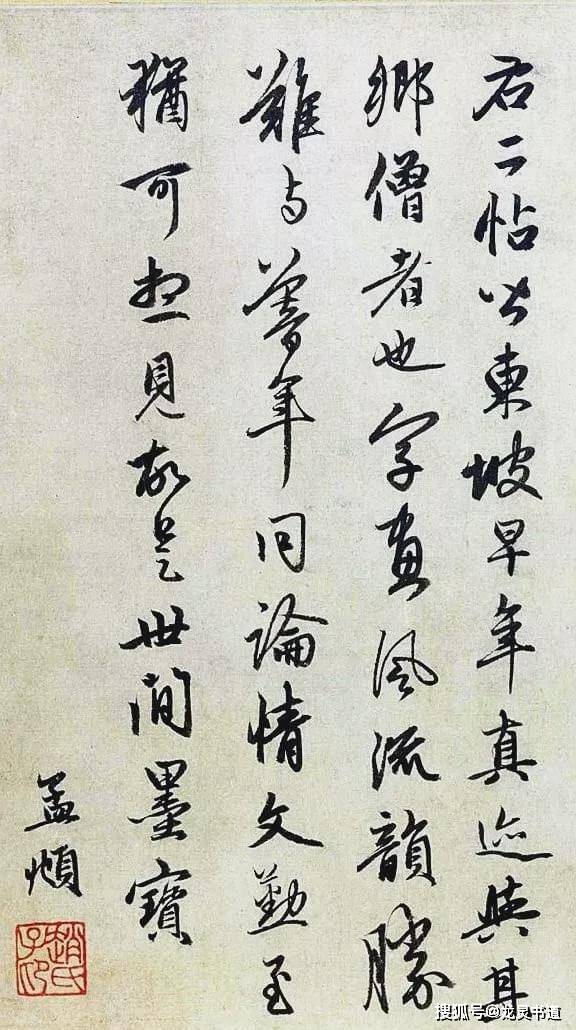 右二帖皆東坡早年真迹與其
鄉僧者也字畫風流韻勝
難与暮年同論情文勤至
猶可想見故是世間墨寶
孟頫
趙氏子印
搜狐号@龙灵书道